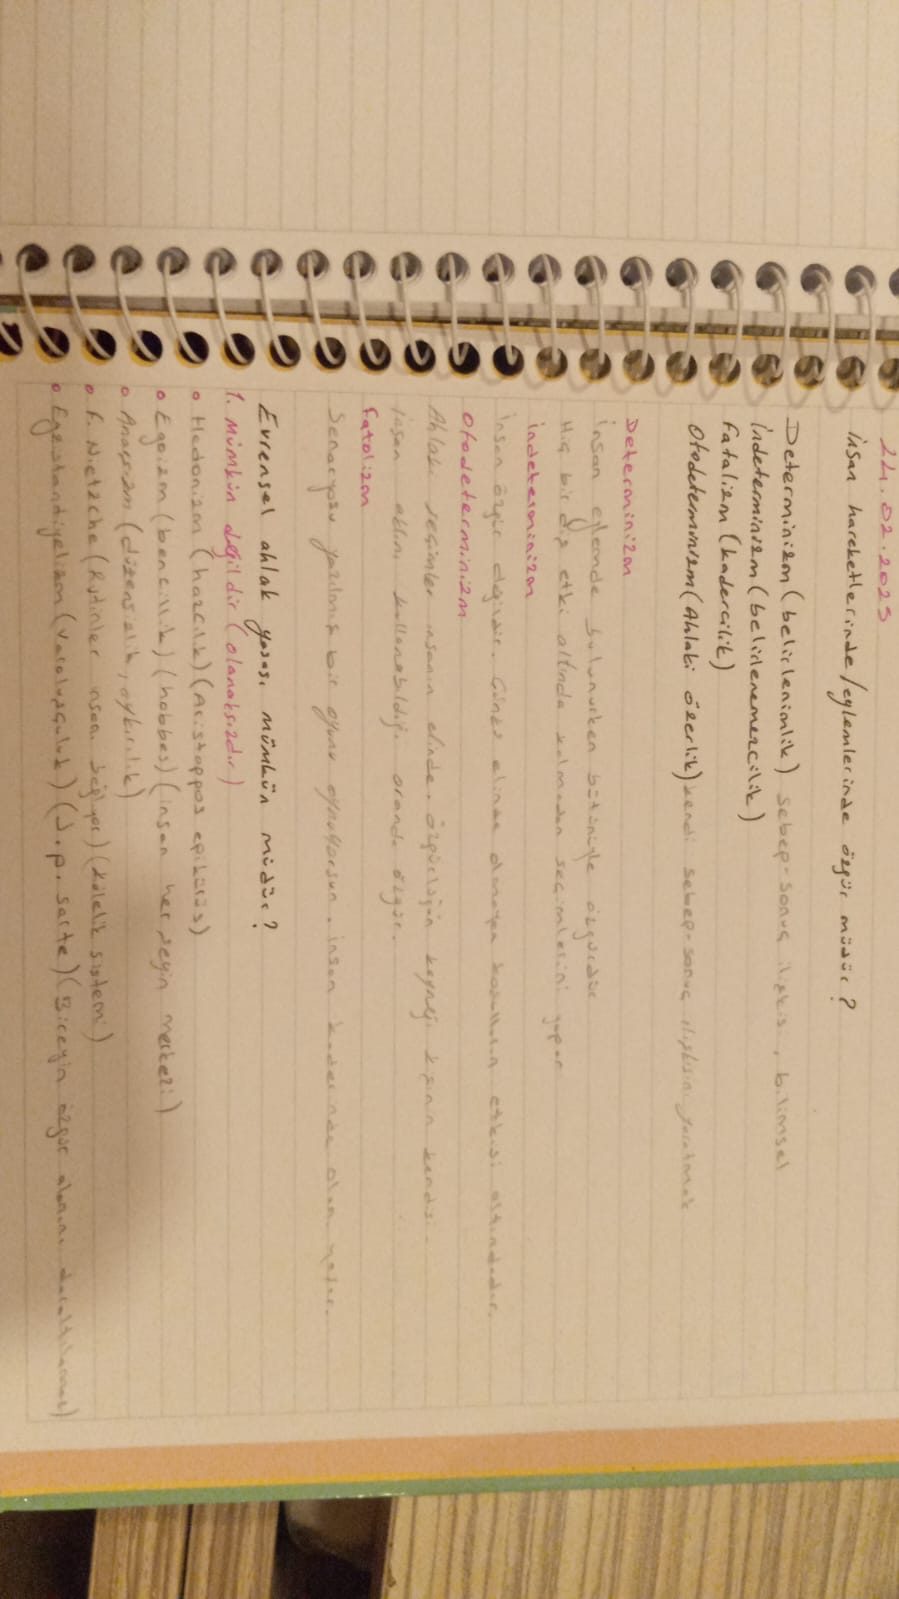 24.02.2025
İnsan hareketlerinde/eylemlerinde özgür müdür?
Determinizm (belirlenimlik) sebep-sonuç ilişkisi, bilimsel
İndeterminizm (belirlenemezcilik)
Fatalizm (kadercilik)
Otodeterminizm (Ahlaki özerlik) kendi sebep-sonuç ilişkisini yaratmak
Determinizm
İnsan eylemde bulunurken bütünüyle özgürdür
Hiç bir dış etki altında kalmadan seçimlerini yapar
İndeterminizm
İnsan özgür değildir. Çünkü elinde olmayan koşulların etkisi altındadır.
Otodeterminizm
Ahlaki seçimler insanın elinde. Özgürlüğün kaynağı kişinin kendisi.
İnsan aklını kullanabildiği oranda özgür.
Fatalizm
Senaryosu yazılmış bir oyunu oynuyorsun. İnsan kaderinde olanı yaşar.
Evrensel ahlak yasası mümkün müdür?
1. Mümkün değildir (olanaksızdır)
• Hedonizm (hazcılık) (Aristoppos epikürüs)
• Egoizm (bencillik) (hobbes) (insan herşeyin merkezi)
• Anarşizm (düzensizlik, aykırılık)
• F. Nietzche (Rutinler insanı bağlıyor) (kölelik sistemi)
• Egzistansiyalizm (varoluşçuluk) (J.p. sarte) (Bireyin özgür alanını daraltılamaz)